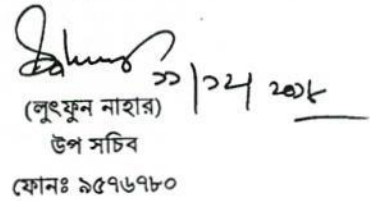 ১১/১২/২০১৮
(লুৎফুন নাহার)
উপ সচিব
ফোনঃ ৯৫৭৬৭৮০